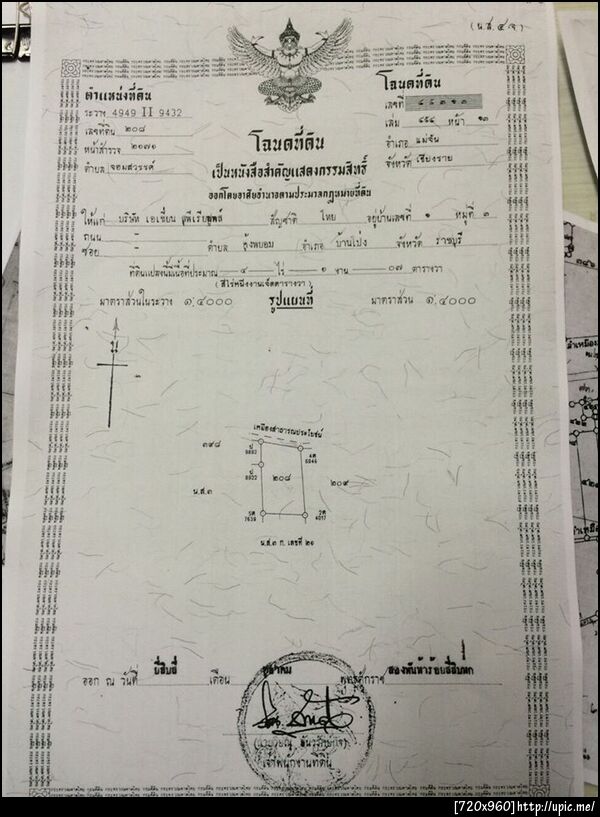 (น.ส.๔ จ)
ตำแหน่งที่ดิน
ระวาง 4949 II 9432
เลขที่ดิน ๒๐๘
หน้าสำรวจ ๒๐๗๑
ตำบล จอมสวรรค์
โฉนดที่ดิน
เลขที่
เล่ม ๔๕๔ หน้า ๑๓
อำเภอ แม่จัน
จังหวัด เชียงราย
โฉนดที่ดิน
เป็นหนังสือสำคัญแสดงกรรมสิทธิ์
ออกโดยอาศัยอำนาจตามประมวลกฎหมายที่ดิน
ให้แก่ บริษัท เอเซี่ยน สัญชาติ ไทย อยู่บ้านเลขที่ ๑ หมู่ที่ ๓
ถนน -
ซอย - ตำบล อำเภอ บ้านโป่ง จังหวัด ราชบุรี
ที่ดินแปลงนี้มีเนื้อที่ประมาณ ๔ ไร่ ๑ งาน ๐๗ ตารางวา
(สี่ไร่หนึ่งงานเจ็ดตารางวา)
มาตราส่วนในระวาง ๑:๔๐๐๐ รูปแผนที่ มาตราส่วน ๑:๔๐๐๐
น
เหมืองสาธารณประโยชน์
๓๙๘
๒๐๘
๒๐๙
น.ส.๓
น.ส.๓ ก. เลขที่ ๒๑
ออก ณ วันที่ ยี่สิบสี่ เดือน ตุลาคม พุทธศักราช สองพันห้าร้อยสี่สิบหก
เจ้าพนักงานที่ดิน
[720x960]http://upic.me/